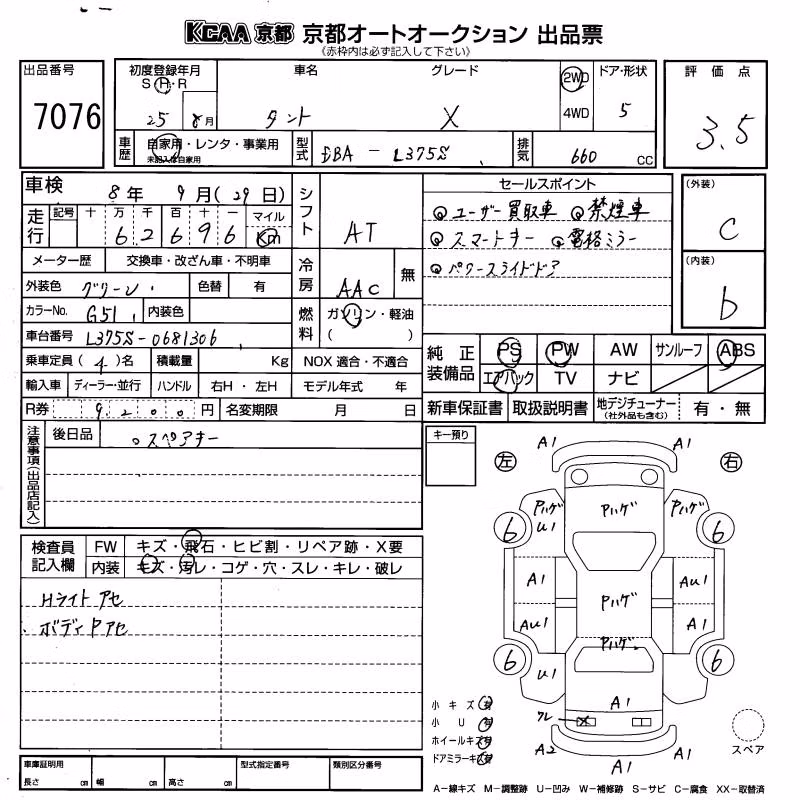 KCAA 京都 京都オートオークション 出品票
(赤枠内は必ず記入して下さい)
出品番号
7076
初度登録年月
S・H・R
25 8月
車名
タント
グレード
X
2WD
4WD
ドア・形状
5
評価点
3.5
車歴
自家用・レンタ・事業用
未記入は自家用
型式
DBA-L375S
排気
660 CC
車検
8年 9月(29日)
シフト
AT
走行
記号 十 万 千 百 十 一 マイル
6 2 6 9 6 Km
メーター歴 交換車・改ざん車・不明車
冷房
AAC 無
外装色 グリーン 色替 有
カラーNo. G51 内装色
燃料
ガソリン・軽油
( )
車台番号 L375S-0681306
乗車定員(4)名 積載量 Kg NOX 適合・不適合
輸入車 ディーラー・並行 ハンドル 右H・左H モデル年式 年
R券 9200円 名変期限 月 日
セールスポイント
◎ユーザー買取車 ◎禁煙車
◎スマートキー ◎電格ミラー
◎パワースライドドア
(外装)
C
(内装)
b
純正装備品
PS PW AW サンルーフ ABS
エアバック TV ナビ
新車保証書 取扱説明書 地デジチューナー(社外品も含む) 有・無
注意事項(出品店記入)
後日品 ○スペアキー
キー預り
検査員記入欄
FW キズ・飛石・ヒビ割・リペア跡・X要
内装 キズ・汚レ・コゲ・穴・スレ・キレ・破レ
Hライトアセ
ボディPアセ
左 A1 A1 右
6 Pハゲ U1 Pハゲ Pハゲ 6
A1 AU1
Pハゲ
AU1 A1
Pハゲ
6 U1 6
A1
ワレ X
A2 A1 A1
小キズ 有
小U 有
ホイールキズ 有
ドアミラーキズ 有
スペア
車庫証明用
長さ cm 幅 cm 高さ cm
型式指定番号 類別区分番号
A-線キズ M-調整跡 U-凹み W-補修跡 S-サビ C-腐食 XX-取替済